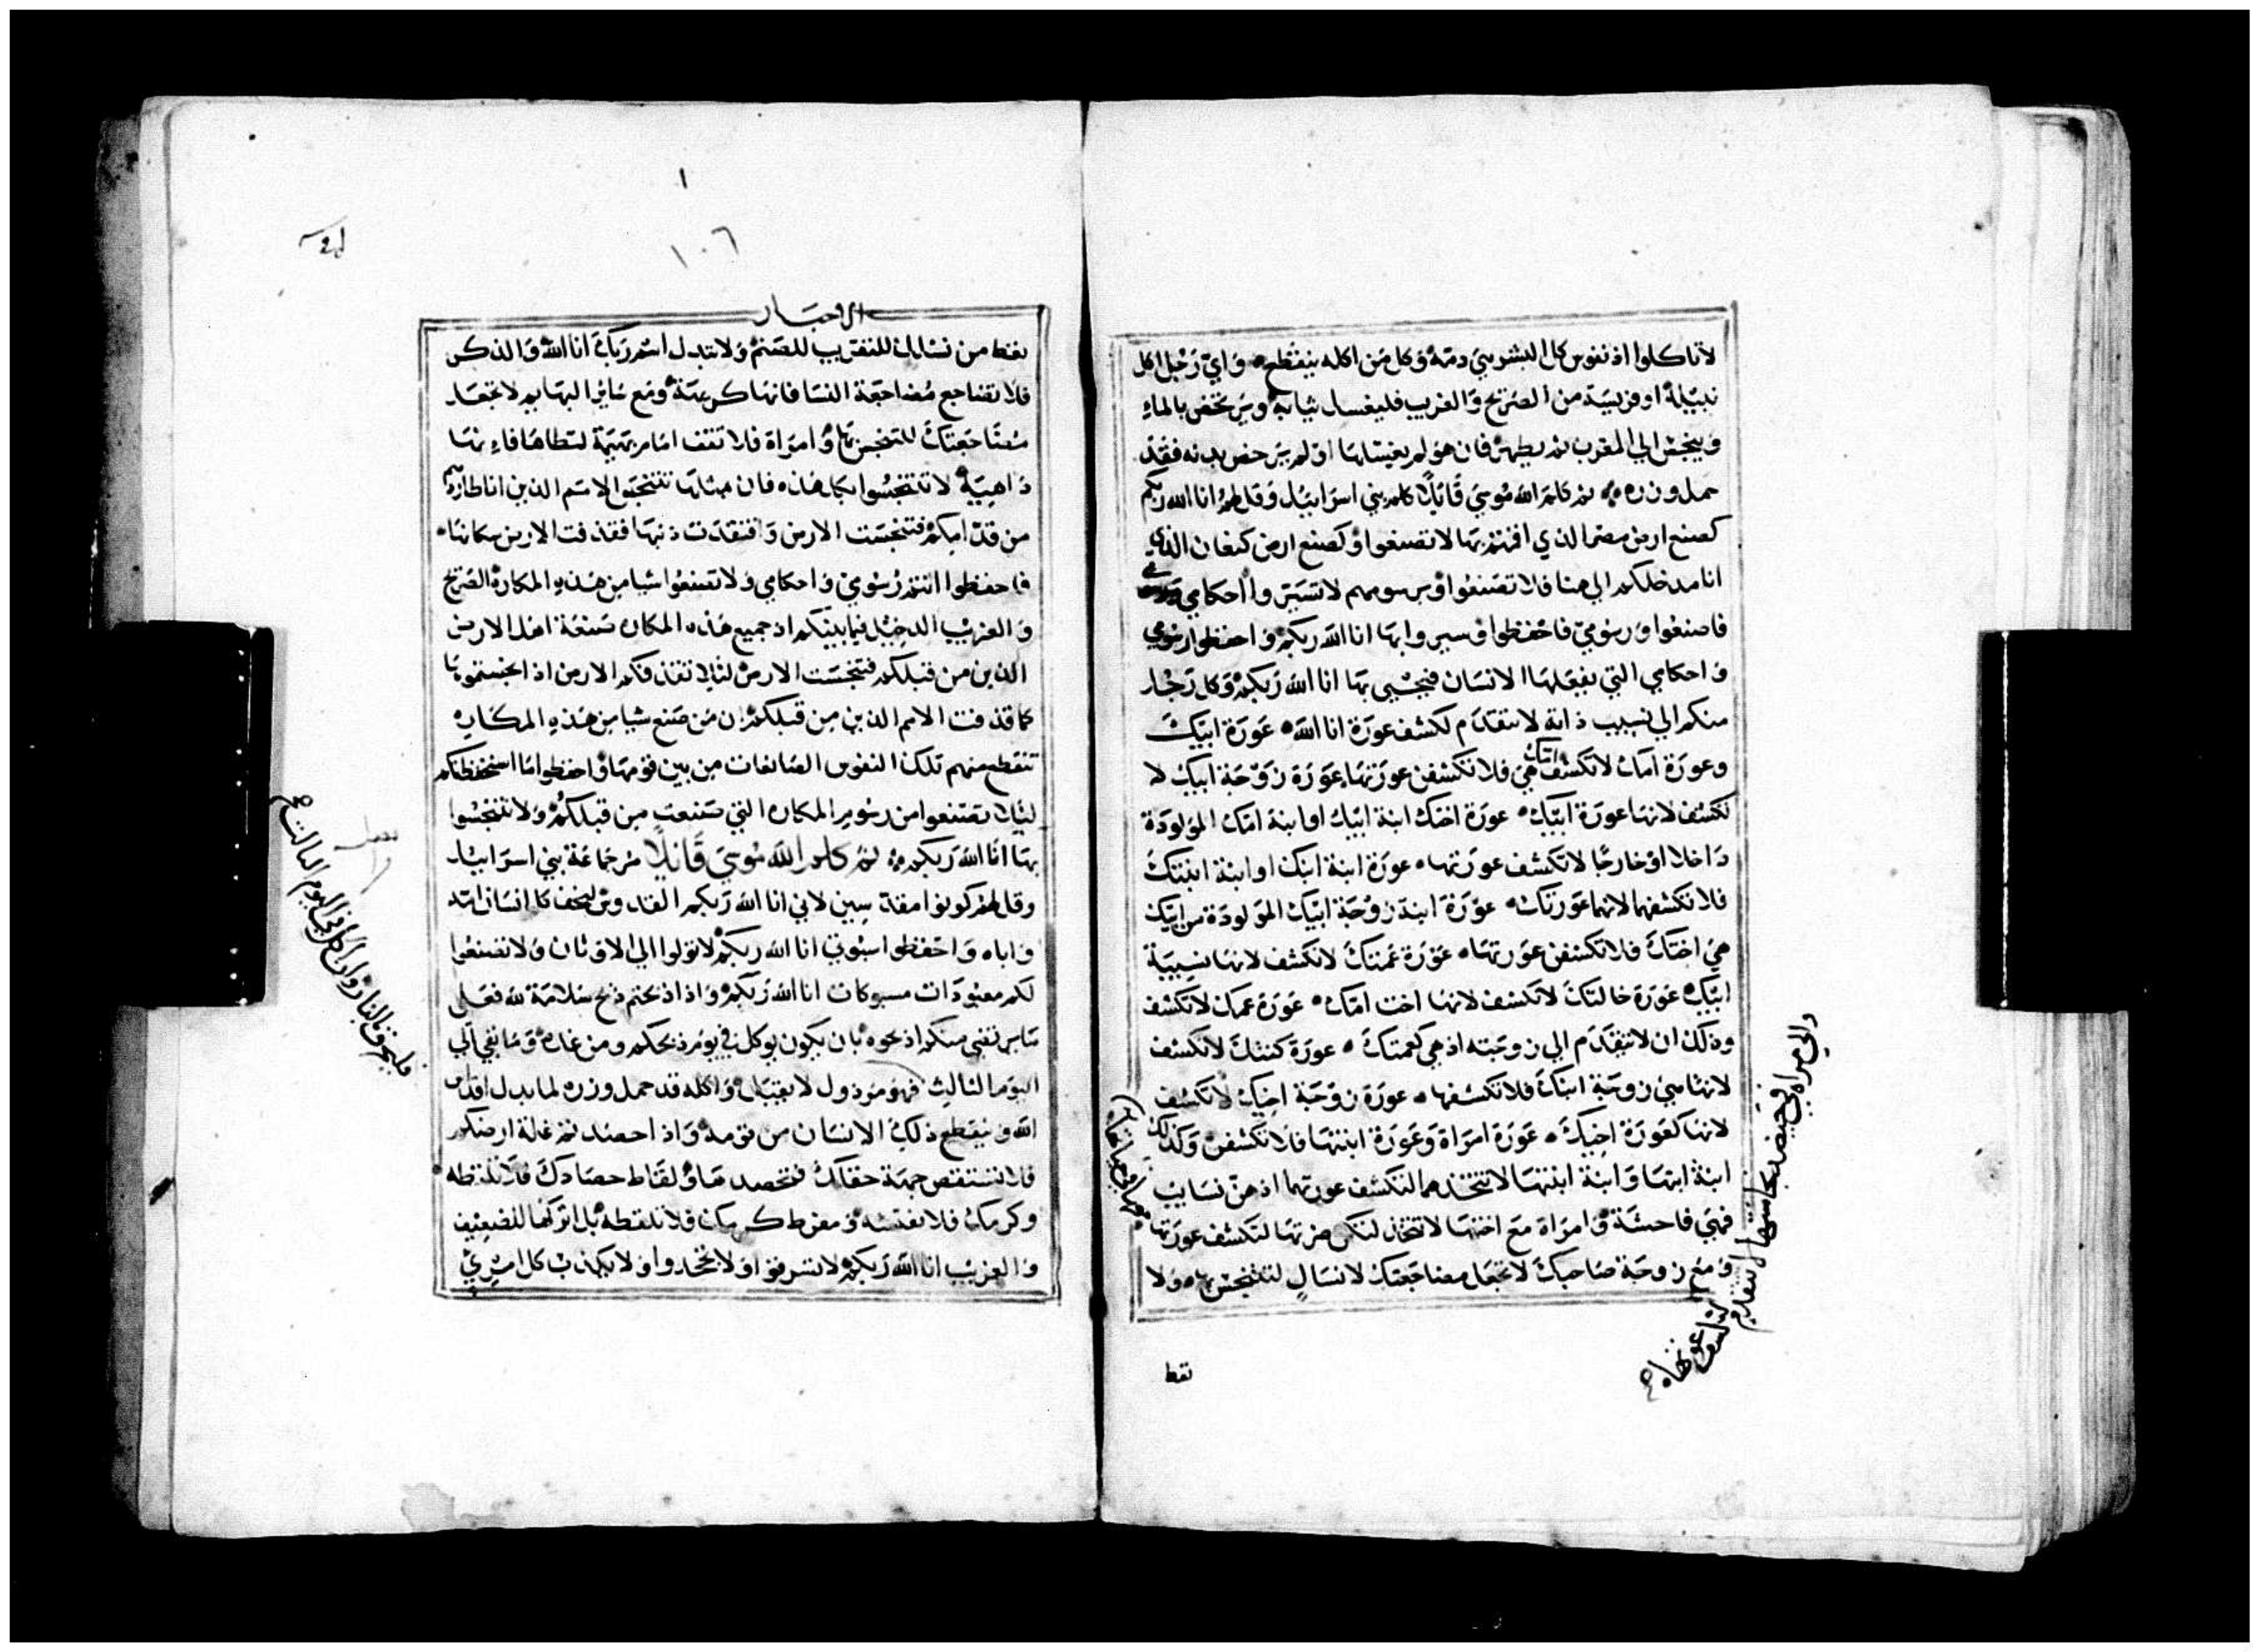 لا تاكلوا اذ نفوس كل البشر هي دمه وكل من اكله ينقطع وايّ رجل اكل
نبيلة او فريسة من الصريح والغريب فليغسل ثيابه ويرتحض بالماء
وينجس الي المغرب ثم يطهر فان هو لم يغسلها او لم يرحض بدنه فقد
حمل وزره ثم كلم الله موسي قايلًا كلم بني اسراييل وقل لهم انا الله ربكم
كصنع ارض مصر الذي اقمتم بها لا تصنعوا وكصنع ارض كنعان الذي
انا مدخلكم الي هنا فلا تصنعوا وبرسومهم لا تسيروا احكامي
فاصنعوا ورسومي فاحفظوا وسيروا بها انا الله ربكم واحفظوا رسومي
واحكامي التي يفعلها الانسان فيحيي بها انا الله ربكم وكل رجل
منكم الي نسيب ذاته لا يتقدم لكشف عورة انا الله عورة ابيك
وعورة امك لا تكشف امك هي فلا تكشفن عورتها عورة زوجة ابيك لا
تكشف لانها عورة ابيك عورة اختك ابنة ابيك او ابنة امك المولودة
داخلا او خارجًا لا تكشف عورتها عورة ابنة ابنك او ابنة ابنتك
فلا تكشفهما لانهما عورتك عورة ابنة زوجة ابيك المولودة من ابيك
هي اختك فلا تكشفن عورتها عورة عمتك لا تكشف لانها نسيبة
ابيك عورة خالتك لا تكشف لانها اخت امك عورة عمك لا تكشف
وذلك ان لا تتقدم الي زوجته اذ هي كعمتك عورة كنتك لا تكشف
لانها هي زوجة ابنك فلا تكشفها عورة زوجة اخيك لا تكشف
لانها كعورة اخيك عورة امراة وعورة ابنتها فلا تكشفن وكذلك
ابنة ابنها وابنة ابنتها لا تتخذهما لتكشف عورتهما اذ هن نسايب
فهي فاحشة وامراة مع اختها لا تتخذ لتكن ضرتها لتكشف عورتها
ومع زوجة صاحبك لا تجعل مضاجعتك لانسال لتتنجس بها ولا
والي امراة في حيض نجاستها لا تتقدم
لتكشف عورتها
تعط
١٠٦
الاحبار
تعط من نسلك للتقريب للصنم ولا تبدل اسم ربك انا الله والذكر
فلا تضاجع مضاجعة النسا فانها كريهة ومع ساير البهايم لا تجعل
مضاجعتك للتنجس بها وامراة فلا تقف امام بهيمة لتطاها فانها
داهية لا تتنجسوا بكل هذه فان مثلها تنجسوا الامم الذين انا طاردهم
من قدامكم فتنجست الارض وافتقدت ذنبها فقذفت الارض سكانها
فاحفظوا انتم رسومي واحكامي ولا تصنعوا شيا من هذه المكاره الصريح
والغريب الدخيل فيما بينكم اذ جميع هذه المكاره صنعة اهل الارض
الذين من قبلكم فتنجست الارض لئلا تقذفكم الارض اذا نجستموها
كما قذفت الامم الذين من قبلكم ان من صنع شيا من هذه المكاره
تنقطع منهم تلك النفوس الصانعات من بين قومها واحفظوا ما استحفظتكم
ليلا تصنعوا من رسوم المكاره التي صنعت من قبلكم ولا تتنجسوا
بها انا الله ربكم ثم كلم الله موسي قايلًا مر جماعة بني اسراييل
وقل لهم كونوا مقدسين لاني انا الله ربكم القدوس ليخف كل انسان امه
واباه واحفظوا سبوتي انا الله ربكم لا تولوا الي الاوثان ولا تصنعوا
لكم معبودات مسبوكات انا الله ربكم واذا ذبحتم ذبح سلامة لله فعلي
اذبحوه بان يكون يوكل في يوم ذبحكم ومن غده وما بقي الي
اليوم الثالث فهو مرذول لا يقبل واكله قد حمل وزره لما بدل اقداس
الله وينقطع ذلك الانسان من قومه واذا حصدتم غلة ارضكم
فلا تستقص جهة حقلك فتحصدها ولقاط حصادك فلا تلتقطه
وكرمك فلا تفتشه ومفرط كرمك فلا تلقطه بل اتركها للضعيف
والغريب انا الله ربكم لا تسرقوا ولا تجحدوا ولا يكذب كل امري
فليحرق بالنار وان اكل في اليوم الثالث